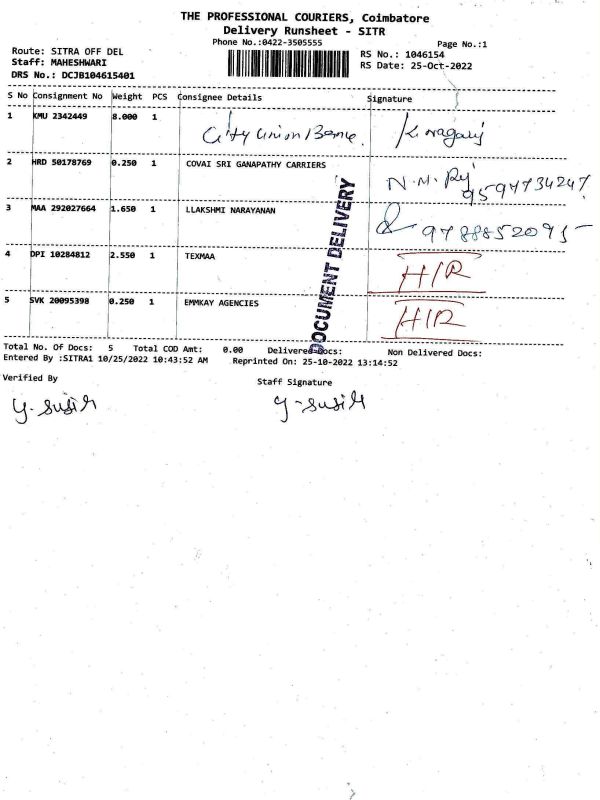 THE PROFESSIONAL COURIERS, Coimbatore
Delivery Runsheet - SITR
Phone No.:0422-3505555
Page No.:1
Route: SITRA OFF DEL
RS No.: 1046154
Staff: MAHESHWARI
RS Date: 25-Oct-2022
DRS No.: DCJB104615401
S No Consignment No Weight PCS Consignee Details Signature
1 KMU 2342449 8.000 1 City Union Bank. K. Nagaraj
2 HRD 50178769 0.250 1 COVAI SRI GANAPATHY CARRIERS N.M. Raj
9597734247
3 MAA 292027664 1.650 1 LLAKSHMI NARAYANAN 9788852095
4 DPI 10284812 2.550 1 TEXMAA H/R
5 SVK 20095398 0.250 1 EMMKAY AGENCIES H/R
DOCUMENT DELIVERY
Total No. Of Docs: 5 Total COD Amt: 0.00 Delivered Docs: Non Delivered Docs:
Entered By :SITRA1 10/25/2022 10:43:52 AM Reprinted On: 25-10-2022 13:14:52
Verified By Staff Signature
y. susila y-susila